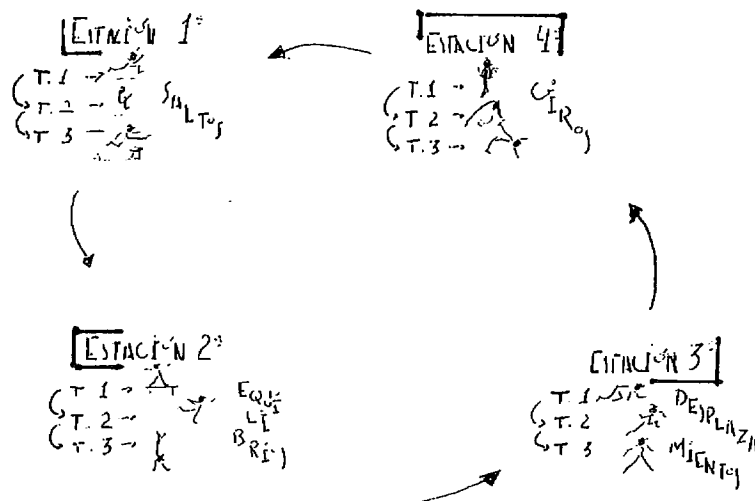 ESTACIÓN 1ª
T. 1 →
T. 2 →
T 3 →
SALTOS
ESTACIÓN 4ª
T. 1 →
T 2 →
T. 3 →
GIROS
ESTACIÓN 2ª
T 1 →
T. 2 →
T. 3 →
EQUI
LI
BRIOS
ESTACIÓN 3ª
T. 1
T. 2
T 3
DESPLAZA
MIENTOS